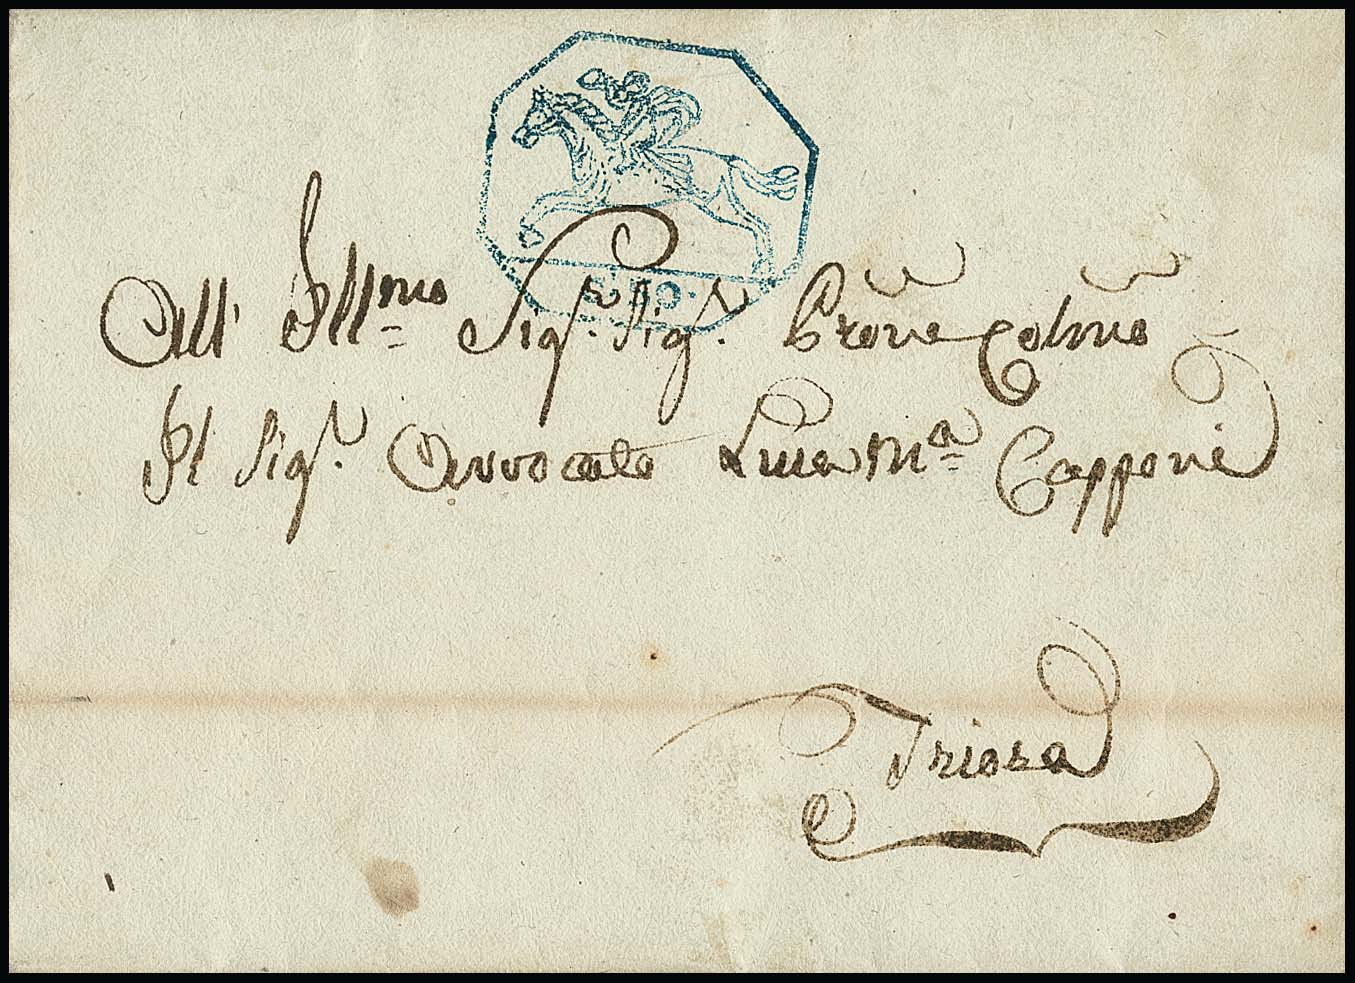 C. 50.
All' Ill.mo Sig.r Sig.r Prone Colmo
Il Sig.r Avvocato Luca M.a Capponi
Triora